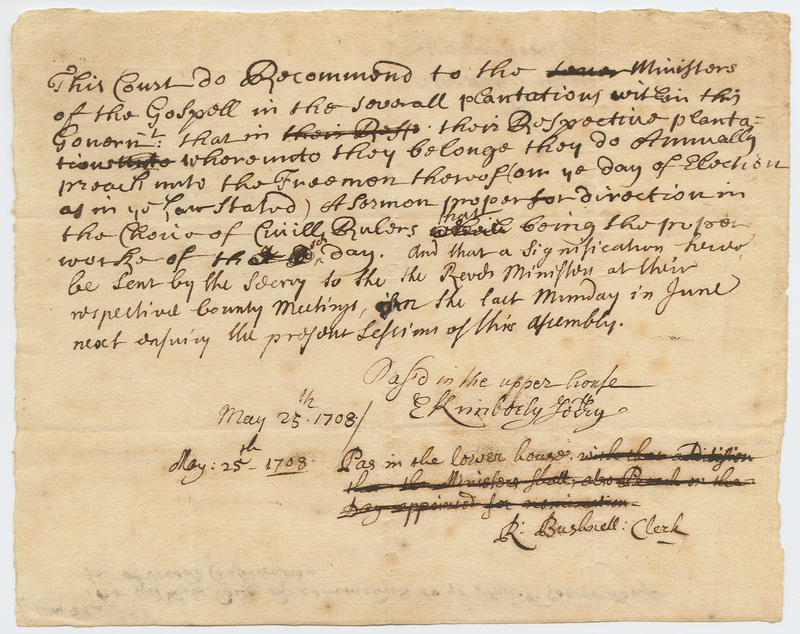 This Court do Recommend to the Ministers
of the Gospell in the severall plantations within this
Governt: that in their Respective planta-
tions whereunto they belonge they do Annually
preach unto the Freemen thereof (on ye day of Election
as in ye Law Stated) A Sermon proper for direction in
the Choice of Civill Rulers that being the proper
worke of the day. And that a signification hereof
be sent by the Secrry to the the Revd Ministers at their
respective County Meetings, on the last Munday in June
next ensuing the present Sessions of this Assembly.
Pas'd in the upper house
May 25th. 1708 / E Kimberly Secry
May: 25th - 1708 Pas in the lower house. with that adition
that the Ministers shall also Preach on the
Day appointed for nomination
R: Bushnell: Clerk